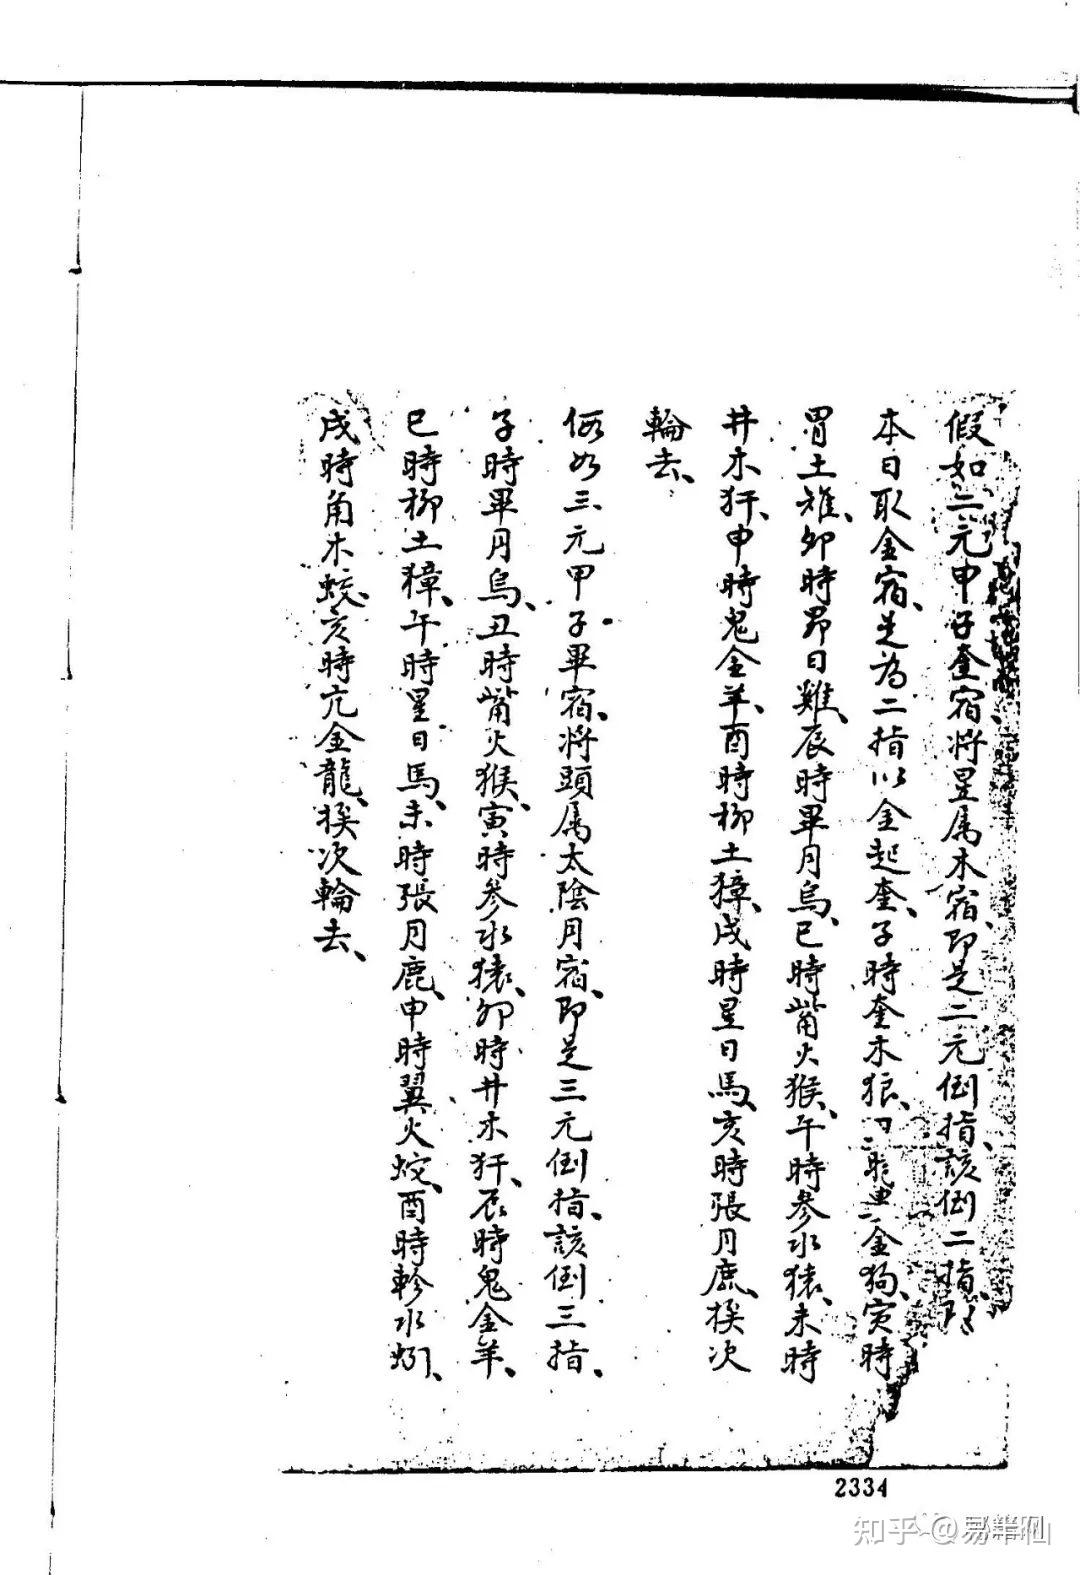 假如二元甲子奎宿、将星属木宿、即是二元倒指、該倒二指、
本日取金宿、是為二指以金起奎、子時奎木狼、金狗、寅時
胃土雉、卯時昴日雞、辰時畢月烏、巳時觜火猴、午時参水猿、未時
井木犴、申時鬼金羊、酉時柳土獐、戌時星日馬、亥時張月鹿、挨次
輪去、
假如三元甲子畢宿、将頭属太陰月宿、即是三元倒指、該倒三指、
子時畢月烏、丑時觜火猴、寅時参水猿、卯時井木犴、辰時鬼金羊、
巳時柳土獐、午時星日馬、未時張月鹿、申時翼火蛇、酉時軫水蚓、
戌時角木蛟、亥時亢金龍、挨次輪去、
2334
知乎 @易半仙